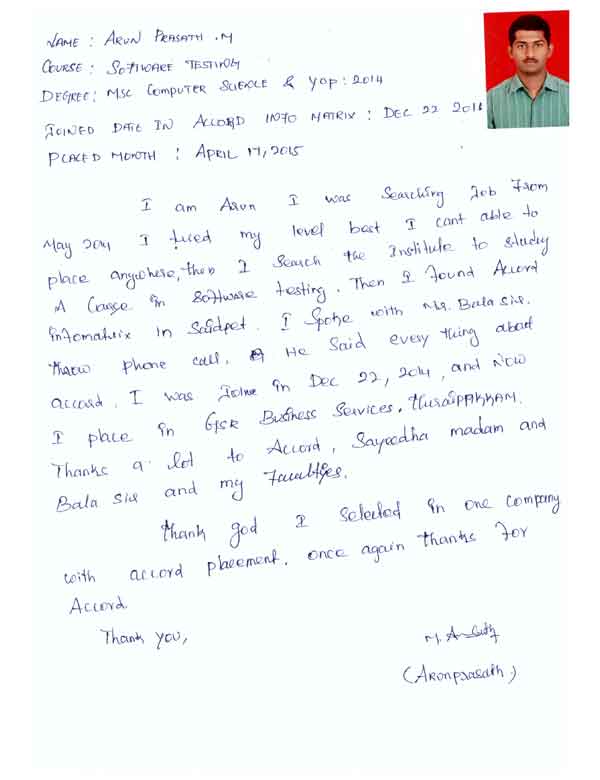 NAME : ARUN PRASATH .M
COURSE : SOFTWARE TESTING
DEGREE : MSC COMPUTER SCIENCE & YOP : 2014
JOINED DATE IN ACCORD INFO MATRIX : DEC 22 2014
PLACED MONTH : APRIL 17, 2015
I am Arun I was Searching Job From
May 2014 I tried my level best I cant able to
place anywhere, then I Search the Institute to study
A Course in Software testing. Then I found Accord
infomatrix in Saidpet. I Spoke with Mr. Bala Sir.
threw phone call. He Said every thing about
accord. I was Joine in Dec 22, 2014, and Now
I place in GSR Business Services, Thuraippakkam.
Thanks a lot to Accord, Sayeedha madam and
Bala Sir and my Faculties.
thank god I Selected in one company
with accord placement. once again thanks For
Accord
Thank you,
(Arunprasath)